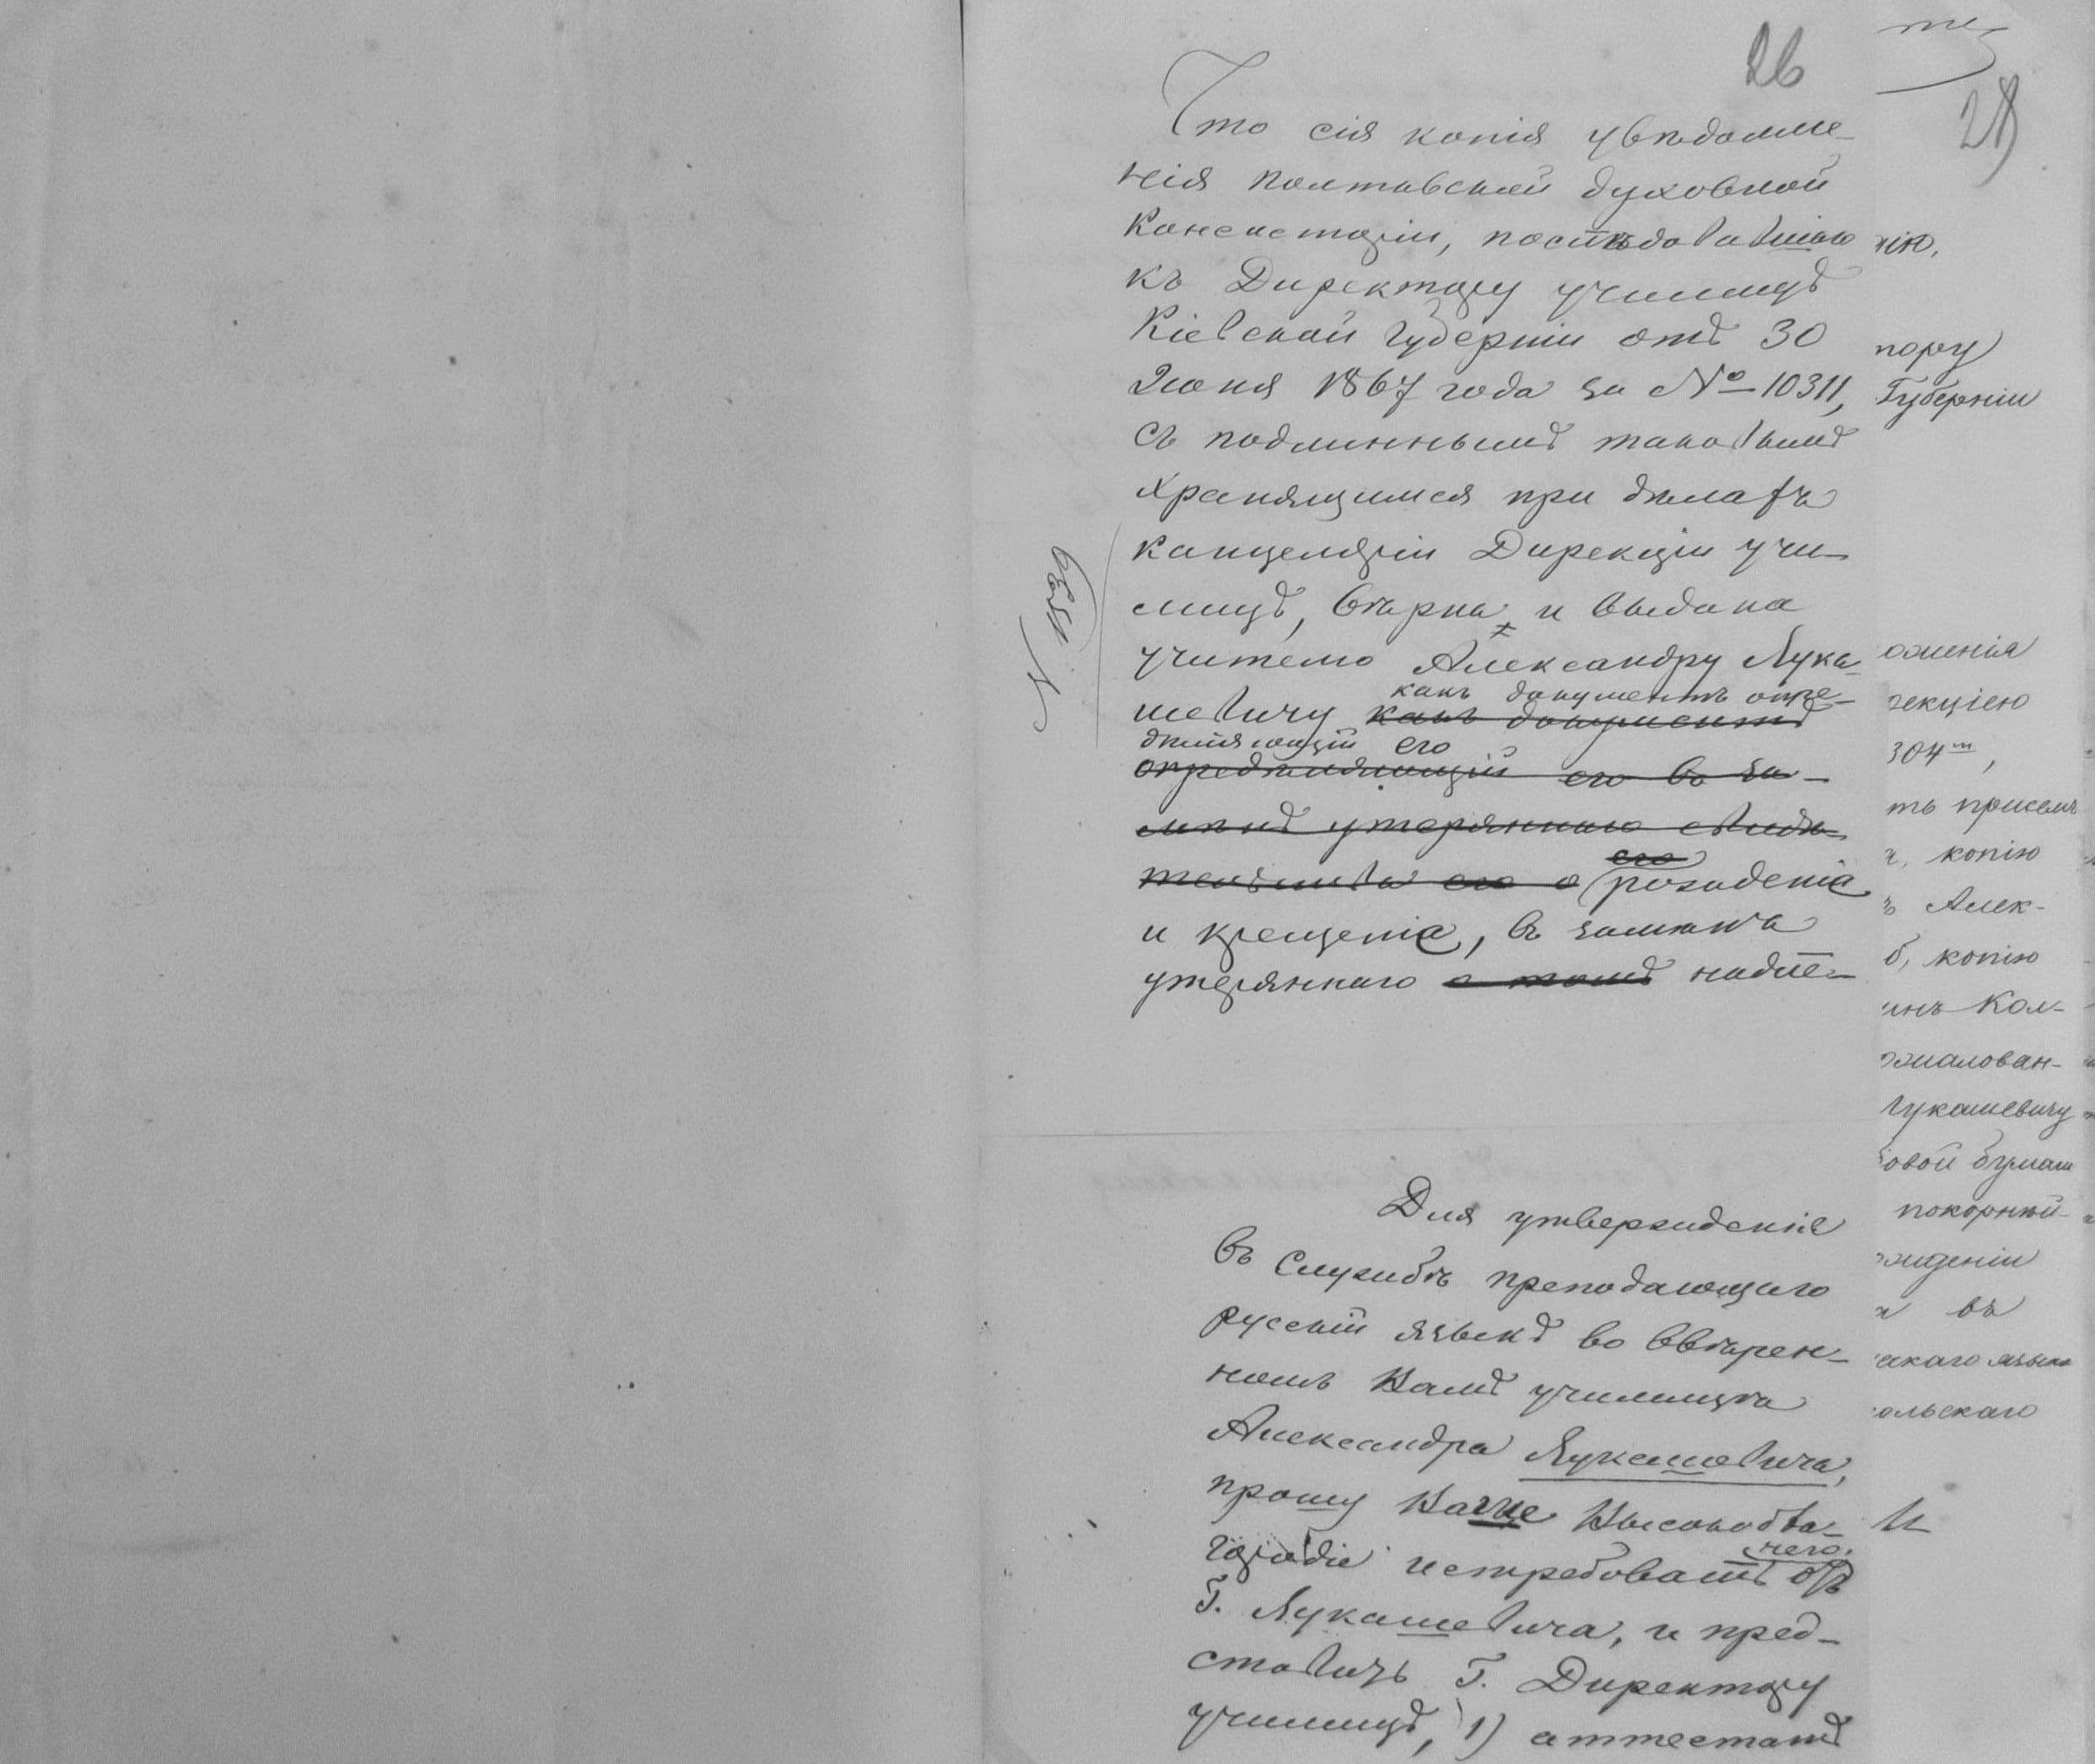 26
28
Что сія копія увѣдомле-
нія Полтавской духовной
Консисторіи, послѣдовавшаго
къ Директору училищъ
Кіевской Губерніи отъ 30
Іюня 1867 года за № 10311,
съ подлиннымъ таковымъ
хранящимся при дѣлахъ
канцеляріи Дирекціи учи-
лищъ, вѣрна, и выдана
учителю Александру Лука-
шевичу какъ документъ
какъ документъ опре-
дѣляющій его
опредѣляющій его во за-
мѣнъ утеряннаго свидѣ-
тельства его о его рожденія
и крещенія, въ замѣнъ
утеряннаго о томъ надле-
Для утвержденія
въ службѣ преподающаго
русскій языкъ во ввѣрен-
номъ Вамъ училищѣ
Александра Лукашевича,
прошу Ваше Высокобла-
городіе истребовать отъ него
Г. Лукашевича, и пред-
ставить Г. Директору
училищъ, 1) аттестатъ
нію,
тору
Губерніи
оженія
рекціею
304
ть
копію
Алек-
копію
Кол-
жалован-
Лукашевичу
овой бумаг
покорнѣй-
жденіи
въ
скаго языка
ольскаго
И